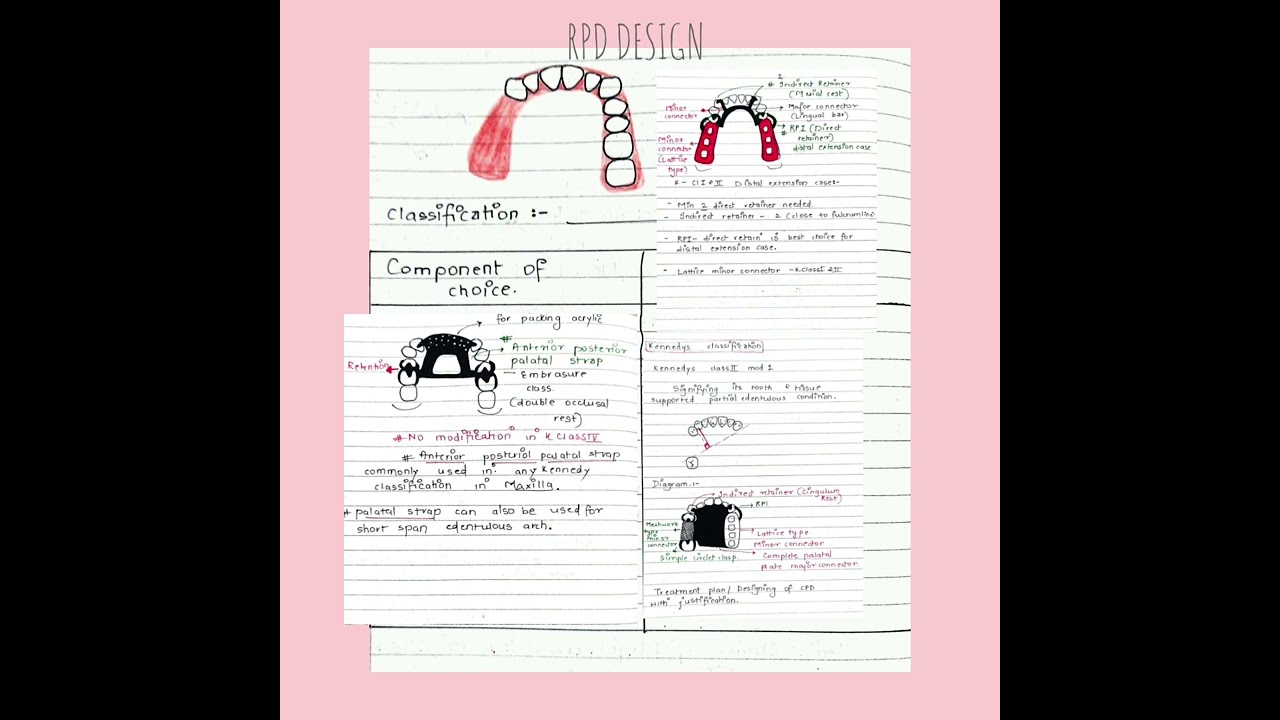 RPD DESIGN
Classification :-
Component of
choice.
# Indirect Retainer
(Mesial rest)
Minor
connector
Major connector
(Lingual bar)
RPI (Direct
retainer)
distal extension case
Minor
connector
(Lattice
type)
K- Cl I & II Distal extension cases-
- Min 2 direct retainer needed.
- Indirect retainer - 2 (close to fulcrumline
- RPI- direct retain is best choice for
distal extension case.
- Lattice minor connector - K class I & II
for packing acrylic
#
Anterior posterior
palatal strap
Retention
Embrasure
class.
(double occlusal
rest)
# No modification in K Class IV
# Anterior posterior palatal strap
commonly used in any Kennedy
classification in Maxilla.
# palatal strap can also be used for
short span edentulous arch.
Kennedys classification
Kennedys class II mod 1
Signifying its tooth & tissue
supported partial edentulous condition.
Diagram:-
Indirect retainer (Cingulum
Rest)
RPI
Meshwork
type
minor
connector
Lattice type
Minor connector
Simple circlet clasp.
Complete palatal
plate major connector
Treatment plan/ Designing of CPD
with justification.